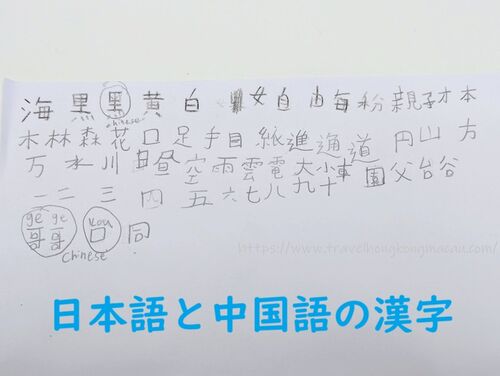 海 黒 黑 黄 白 女 自 由 毎 粉 親 子 才 本
chinese
木 林 森 花 口 足 手 目 紙 進 通 道 円 山 方
万 水 川 昼 空 雨 雲 電 大 小 車 園 父 台 谷
一 二 三 四 五 六 七 八 九 十
ge ge kou
哥 哥 口 同
chinese
https://www.travelhongkongmacau.com/
日本語と中国語の漢字